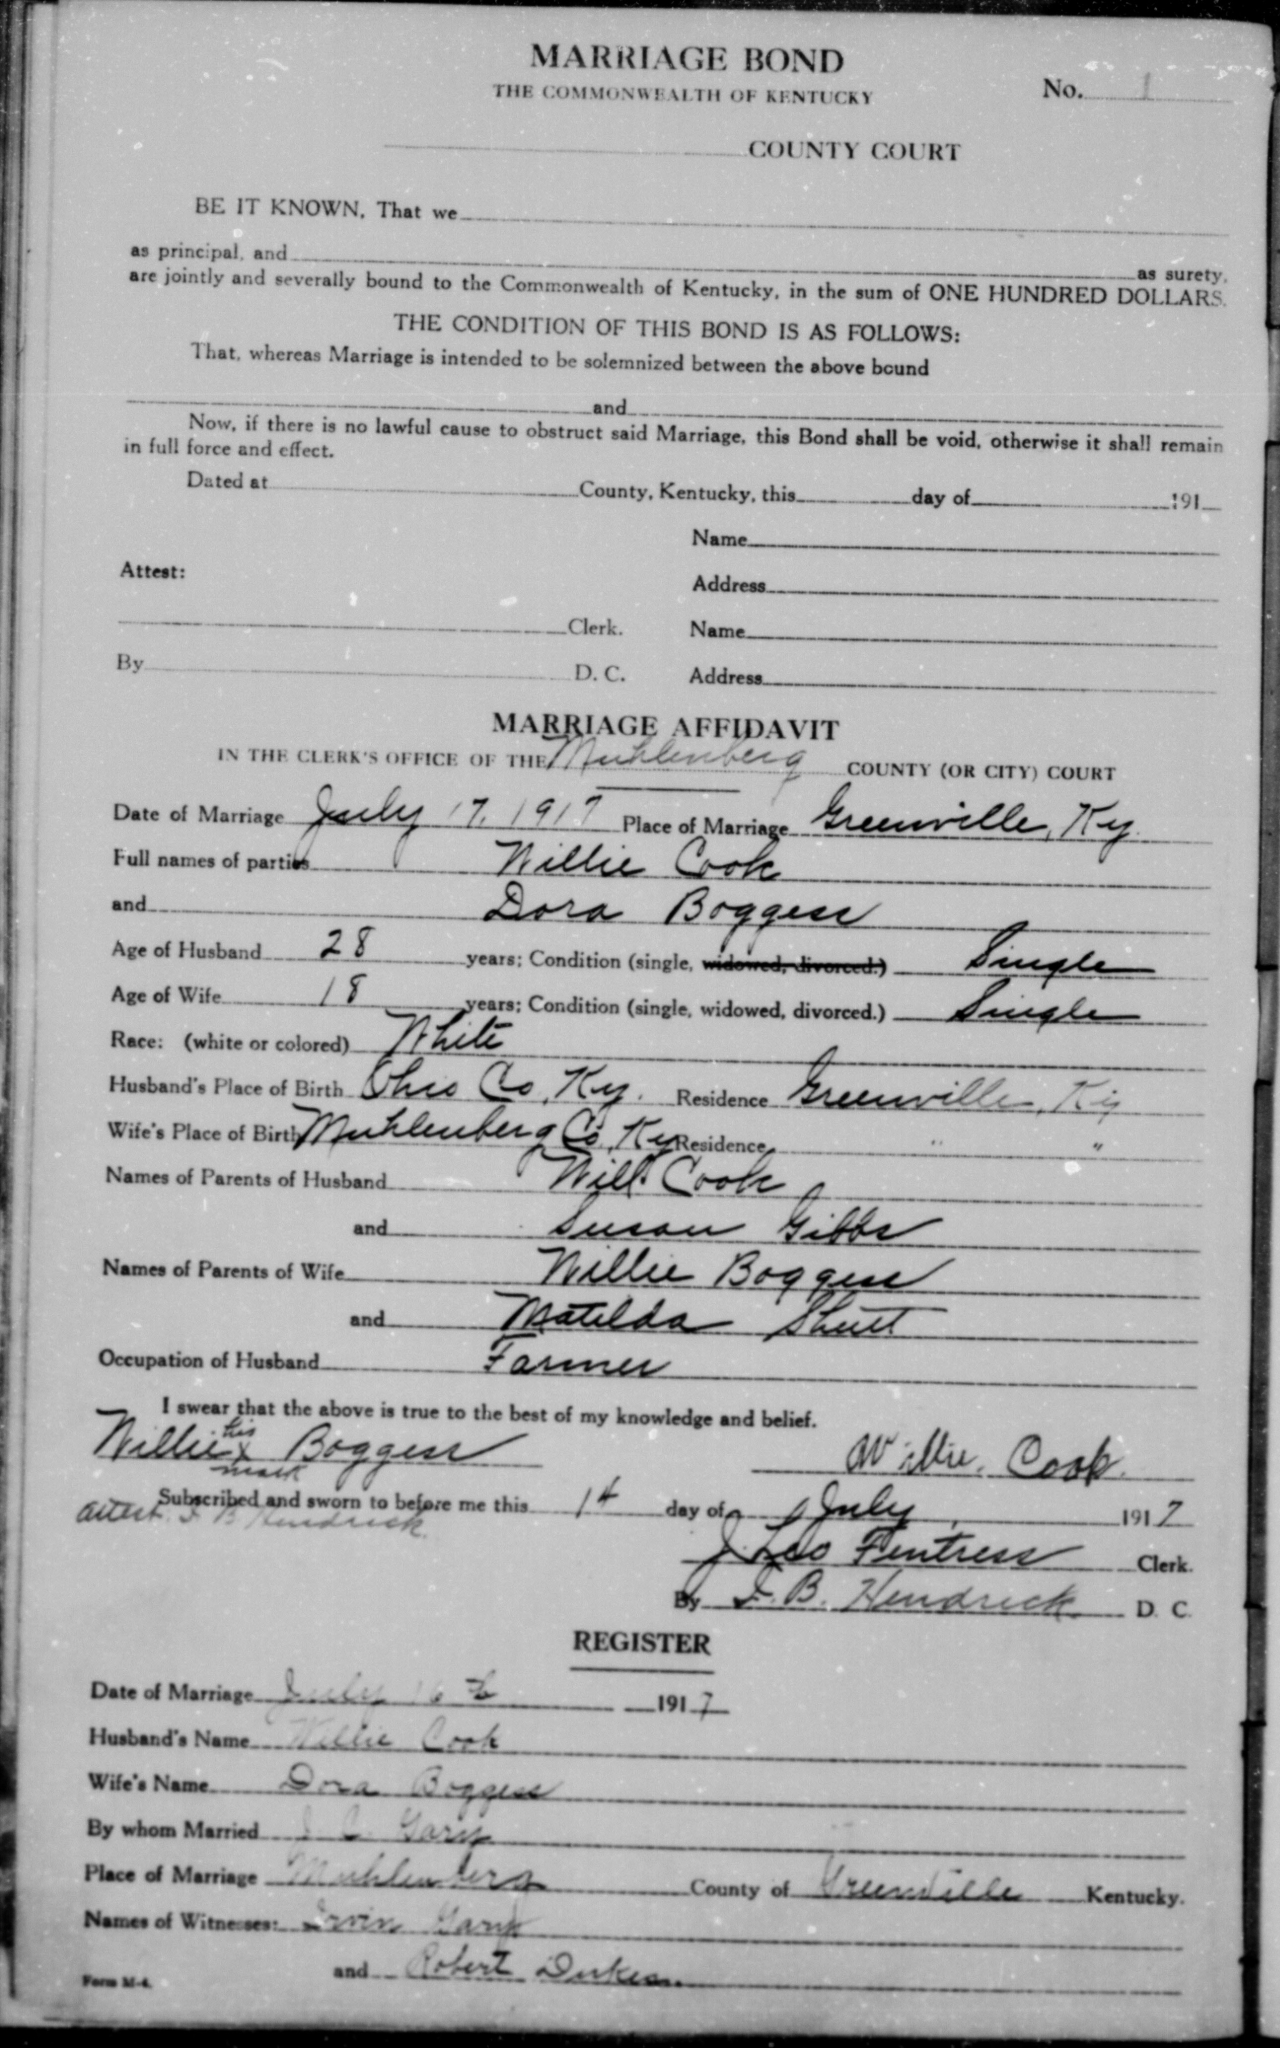 MARRIAGE BOND
THE COMMONWEALTH OF KENTUCKY
No. 1
COUNTY COURT
BE IT KNOWN, That we
as principal, and as surety,
are jointly and severally bound to the Commonwealth of Kentucky, in the sum of ONE HUNDRED DOLLARS.
THE CONDITION OF THIS BOND IS AS FOLLOWS:
That, whereas Marriage is intended to be solemnized between the above bound
and
Now, if there is no lawful cause to obstruct said Marriage, this Bond shall be void, otherwise it shall remain
in full force and effect.
Dated at County, Kentucky, this day of 191
Name
Attest:
Address
Clerk. Name
By D. C. Address
MARRIAGE AFFIDAVIT
IN THE CLERK'S OFFICE OF THE Muhlenberg COUNTY (OR CITY) COURT
Date of Marriage July 17, 1917 Place of Marriage Greenville, Ky.
Full names of parties Willie Cook
and Dora Boggess
Age of Husband 28 years; Condition (single, widowed, divorced.) Single
Age of Wife 18 years; Condition (single, widowed, divorced.) Single
Race: (white or colored) White
Husband's Place of Birth Ohio Co, Ky. Residence Greenville, Ky
Wife's Place of Birth Muhlenberg Co, Ky Residence " "
Names of Parents of Husband Will Cook
and Susan Gibbs
Names of Parents of Wife Willie Boggess
and Matilda Shutt
Occupation of Husband Farmer
I swear that the above is true to the best of my knowledge and belief.
Willie his x mark Boggess
Willie Cook
Subscribed and sworn to before me this 14 day of July, 1917
attest. F B Hendrick
J. Leo Fentress Clerk.
By F. B. Hendrick D. C.
REGISTER
Date of Marriage July 16th 1917
Husband's Name Willie Cook
Wife's Name Dora Boggess
By whom Married J C. Gary
Place of Marriage Muhlenberg County of Greenville Kentucky.
Names of Witnesses: Irvin Gary
and Robert Dukes.
Form M-4.